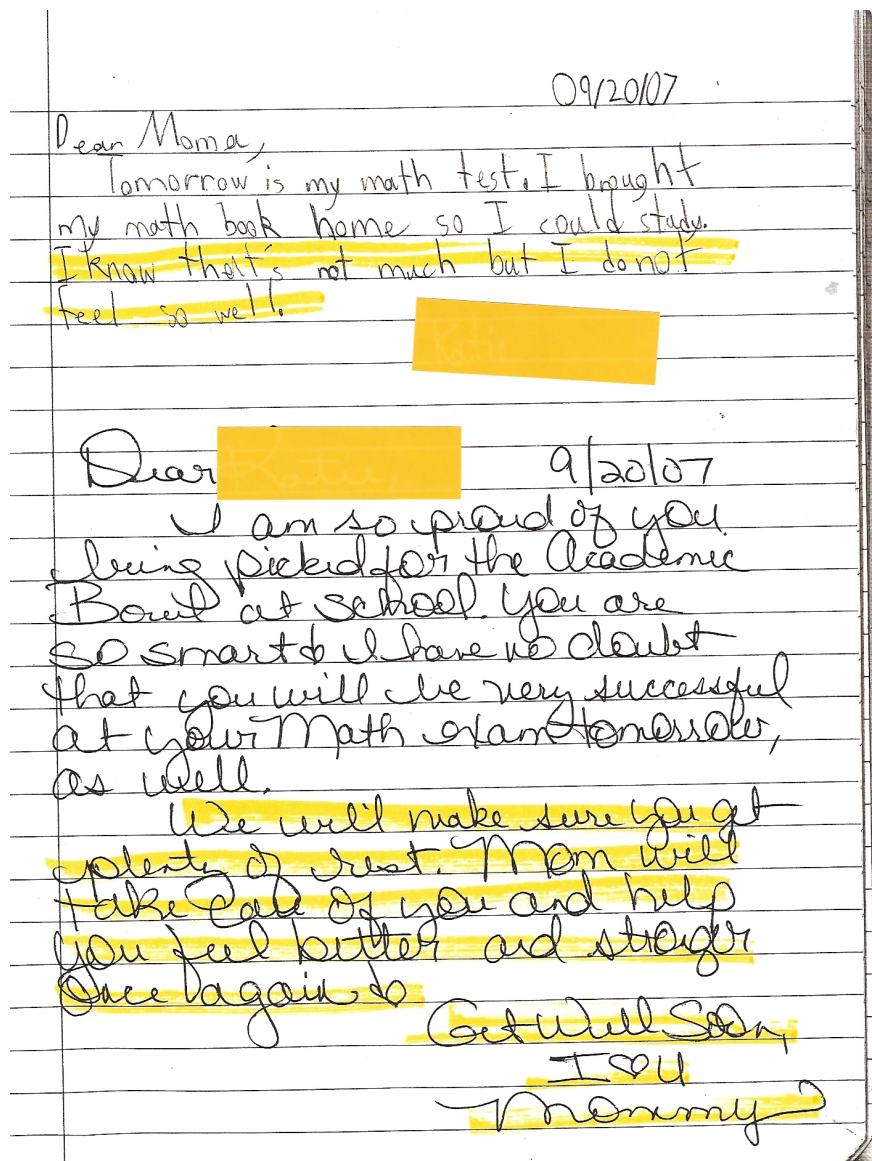 09/20/07
Dear Moma,
Tomorrow is my math test. I brought
my math book home so I could study.
I know that's not much but I do not
feel so well.
Dear
9/20/07
I am so proud of you
being picked for the Academic
Bowl at school. You are
so smart & I have no doubt
that you will be very successful
at your Math exam tomorrow,
as well.
We will make sure you get
plenty of rest. Mom will
take care of you and help
you feel better and stronger
once again
Get Well Soon,
I ♡ U
Mommy